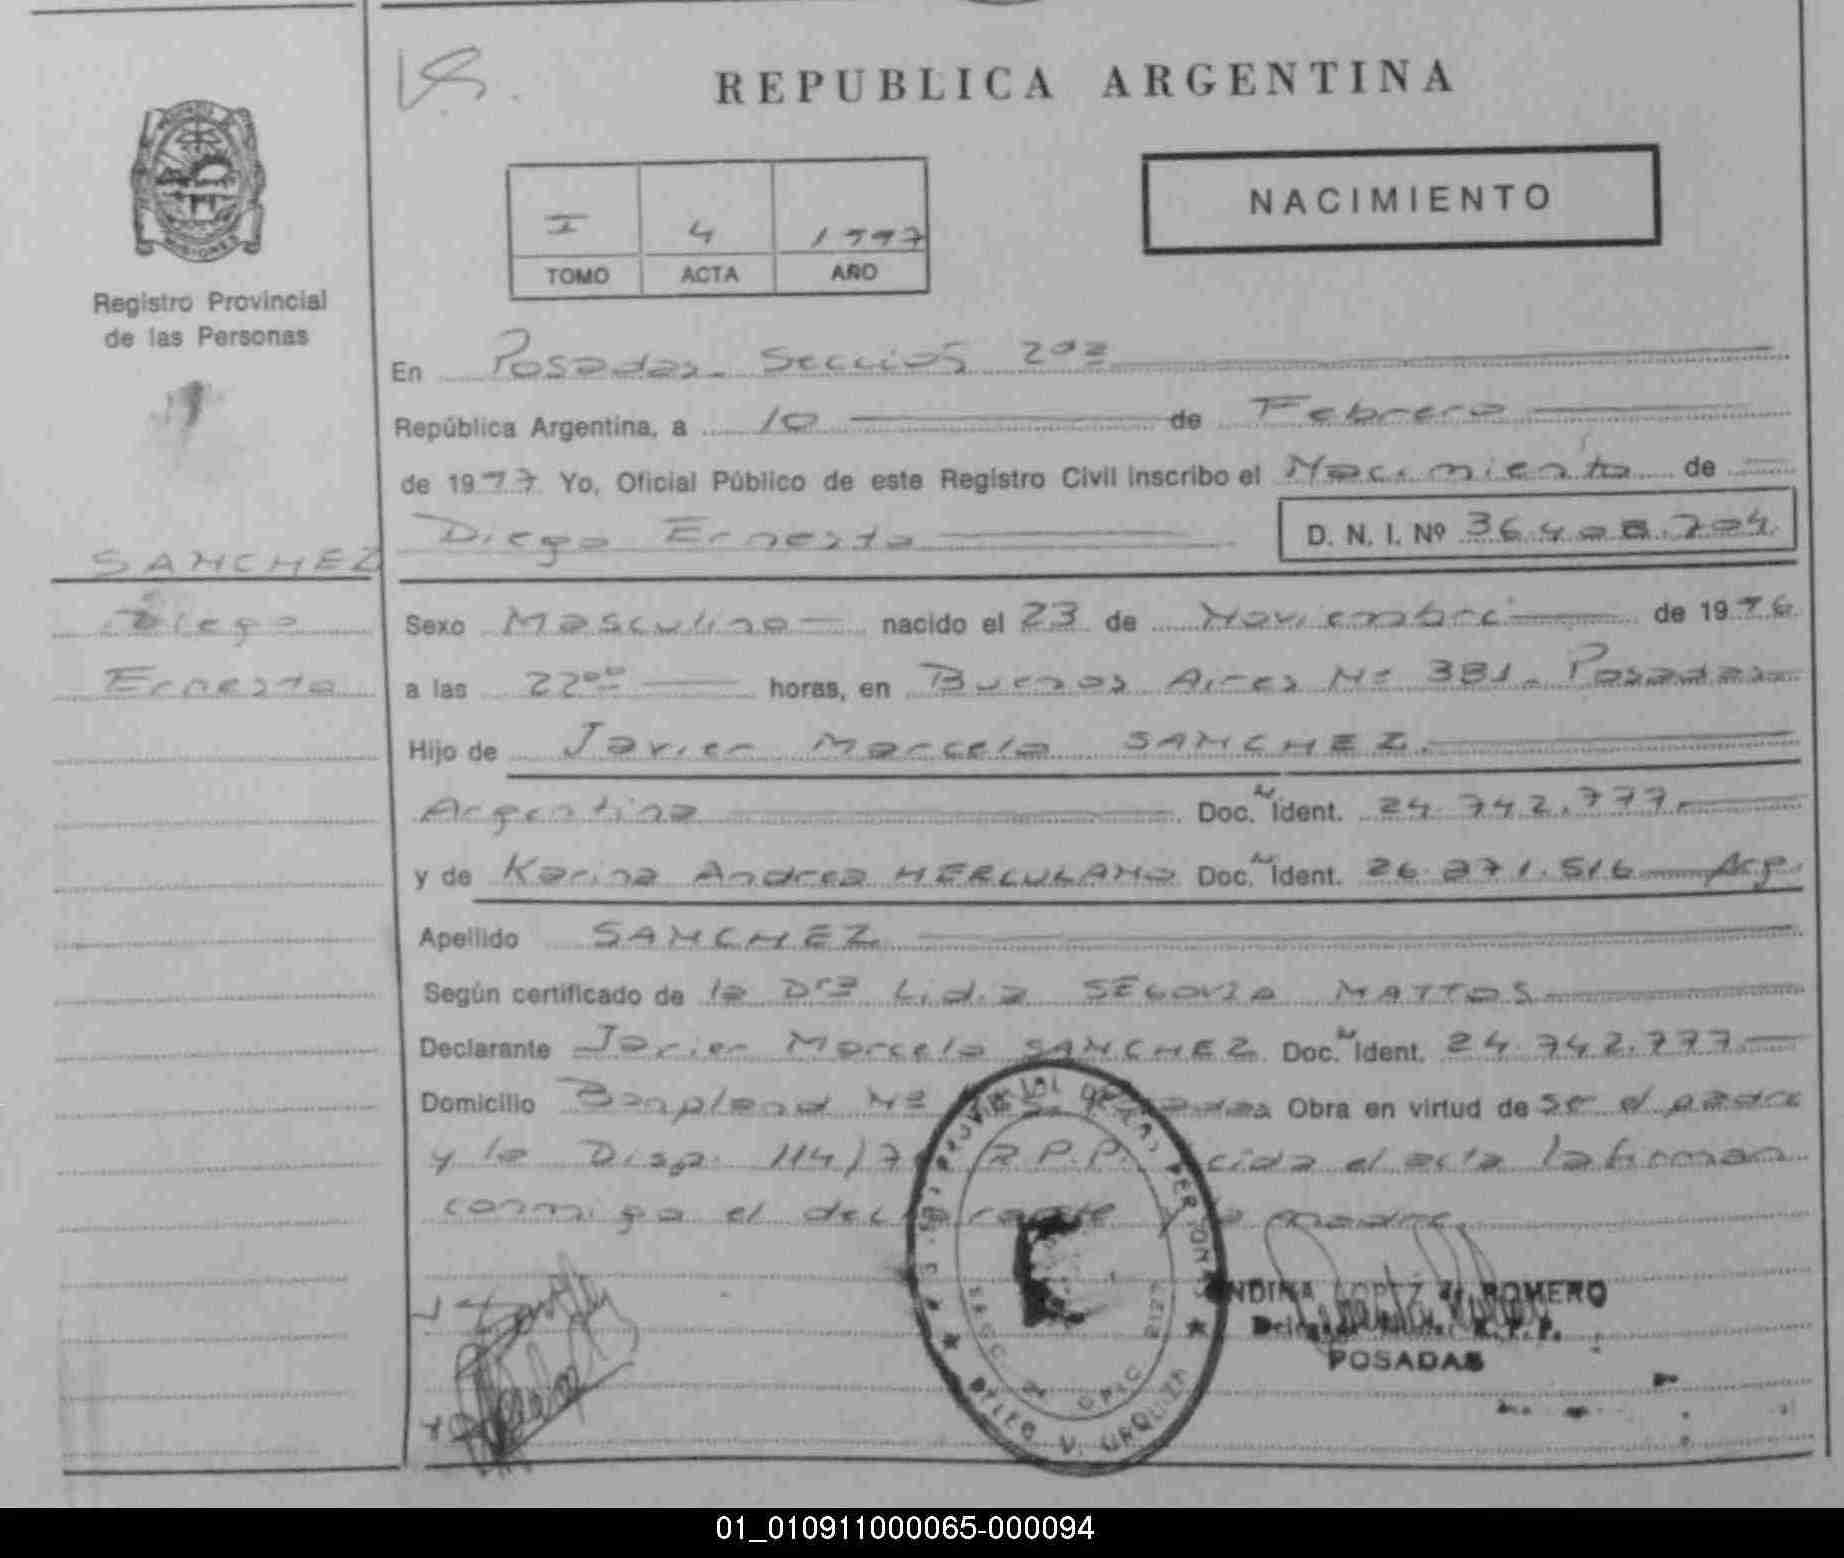 REPUBLICA ARGENTINA
NACIMIENTO
I 4 1997
TOMO ACTA AÑO
Registro Provincial
de las Personas
En Posadas. Sección 2da
República Argentina, a 10 de Febrero
de 1997 Yo, Oficial Público de este Registro Civil inscribo el Nacimiento de
Diego Ernesto D. N. I. Nº 36.408.704.
SANCHEZ
Diego
Ernesto
Sexo Masculino nacido el 23 de Noviembre de 1996
a las 22 horas, en Buenos Aires Nº 381. Posadas
Hijo de Javier Marcelo SANCHEZ.
Argentina Doc. Ident. 24.742.777.
y de Karina Andrea HERCULANO Doc. Ident. 26.271.516 Arg.
Apellido SANCHEZ
Según certificado de la Dra Lidia SEGOVIA MATTOS
Declarante Javier Marcelo SANCHEZ Doc. Ident. 24.742.777.
Domicilio Bonpland Nº Obra en virtud de ser el padre
y la Disp. 114/ R.P.P. el acta la firman
conmigo el declarante y la madre.
LOPEZ de ROMERO
R. P. P.
POSADAS
01_010911000065-000094